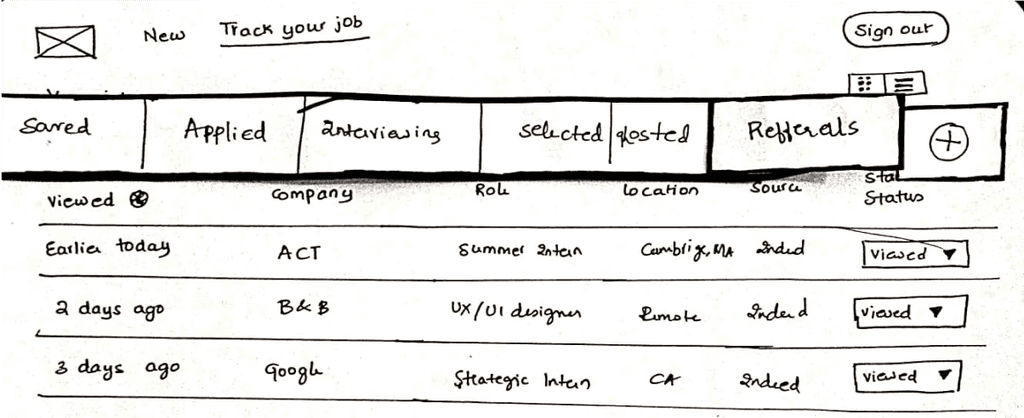 New Track your job Sign out
Saved Applied Interviewing Selected Posted Refferals
Viewed Company Role Location Source Status
Earlier today ACT Summer Intern Cambrige, MA Indeed viewed
2 days ago B&B UX/UI designer Remote Indeed viewed
3 days ago Google Strategic Intern CA Indeed viewed